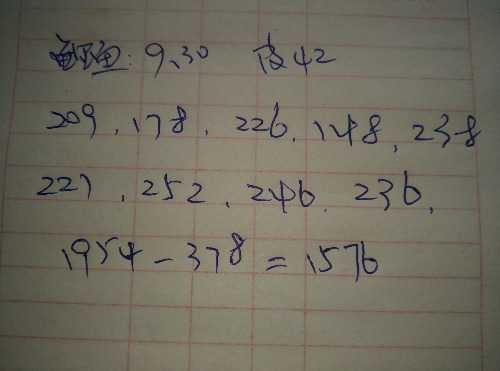 9.30 皮42
209.178.226.148.238
221.252.246.236.
1954-378=1576